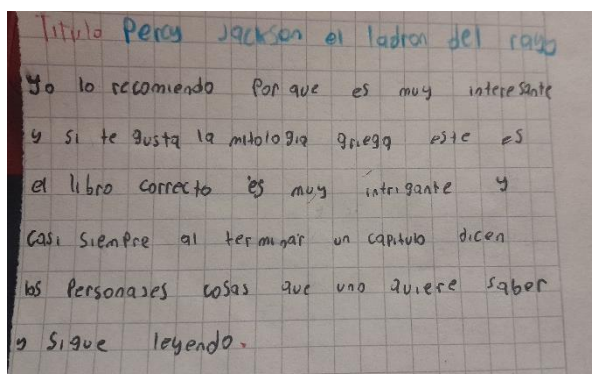 Titulo Percy Jackson el ladron del rayo
Yo lo recomiendo Por que es muy interesante
y si te gusta la mitologia griega este es
el libro correcto es muy intrigante y
Casi Siempre al terminar un capitulo dicen
los Personajes cosas que uno quiere saber
y sigue leyendo.